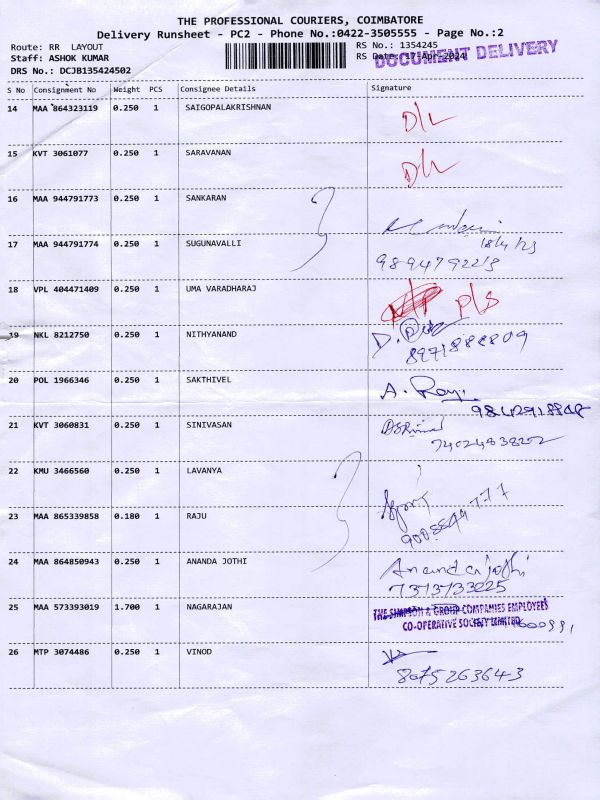 THE PROFESSIONAL COURIERS, COIMBATORE
Delivery Runsheet - PC2 - Phone No.:0422-3505555 - Page No.:2
Route: RR LAYOUT
RS No.: 1354245
Staff: ASHOK KUMAR
RS Date: 17-Apr-2024
DOCUMENT DELIVERY
DRS No.: DCJB135424502
S No Consignment No Weight PCS Consignee Details Signature
14 MAA 864323119 0.250 1 SAIGOPALAKRISHNAN D/L
15 KVT 3061077 0.250 1 SARAVANAN D/L
16 MAA 944791773 0.250 1 SANKARAN
17 MAA 944791774 0.250 1 SUGUNAVALLI
18 VPL 404471409 0.250 1 UMA VARADHARAJ P/S
19 NKL 8212750 0.250 1 NITHYANAND
20 POL 1966346 0.250 1 SAKTHIVEL
21 KVT 3060831 0.250 1 SINIVASAN
22 KMU 3466560 0.250 1 LAVANYA
23 MAA 865339858 0.180 1 RAJU
24 MAA 864850943 0.250 1 ANANDA JOTHI Ananda jothi
25 MAA 573393019 1.700 1 NAGARAJAN THE SIMPSON & GROUP COMPANIES EMPLOYEES
CO-OPERATIVE SOCIETY LIMITED
26 MTP 3074486 0.250 1 VINOD
8075263643